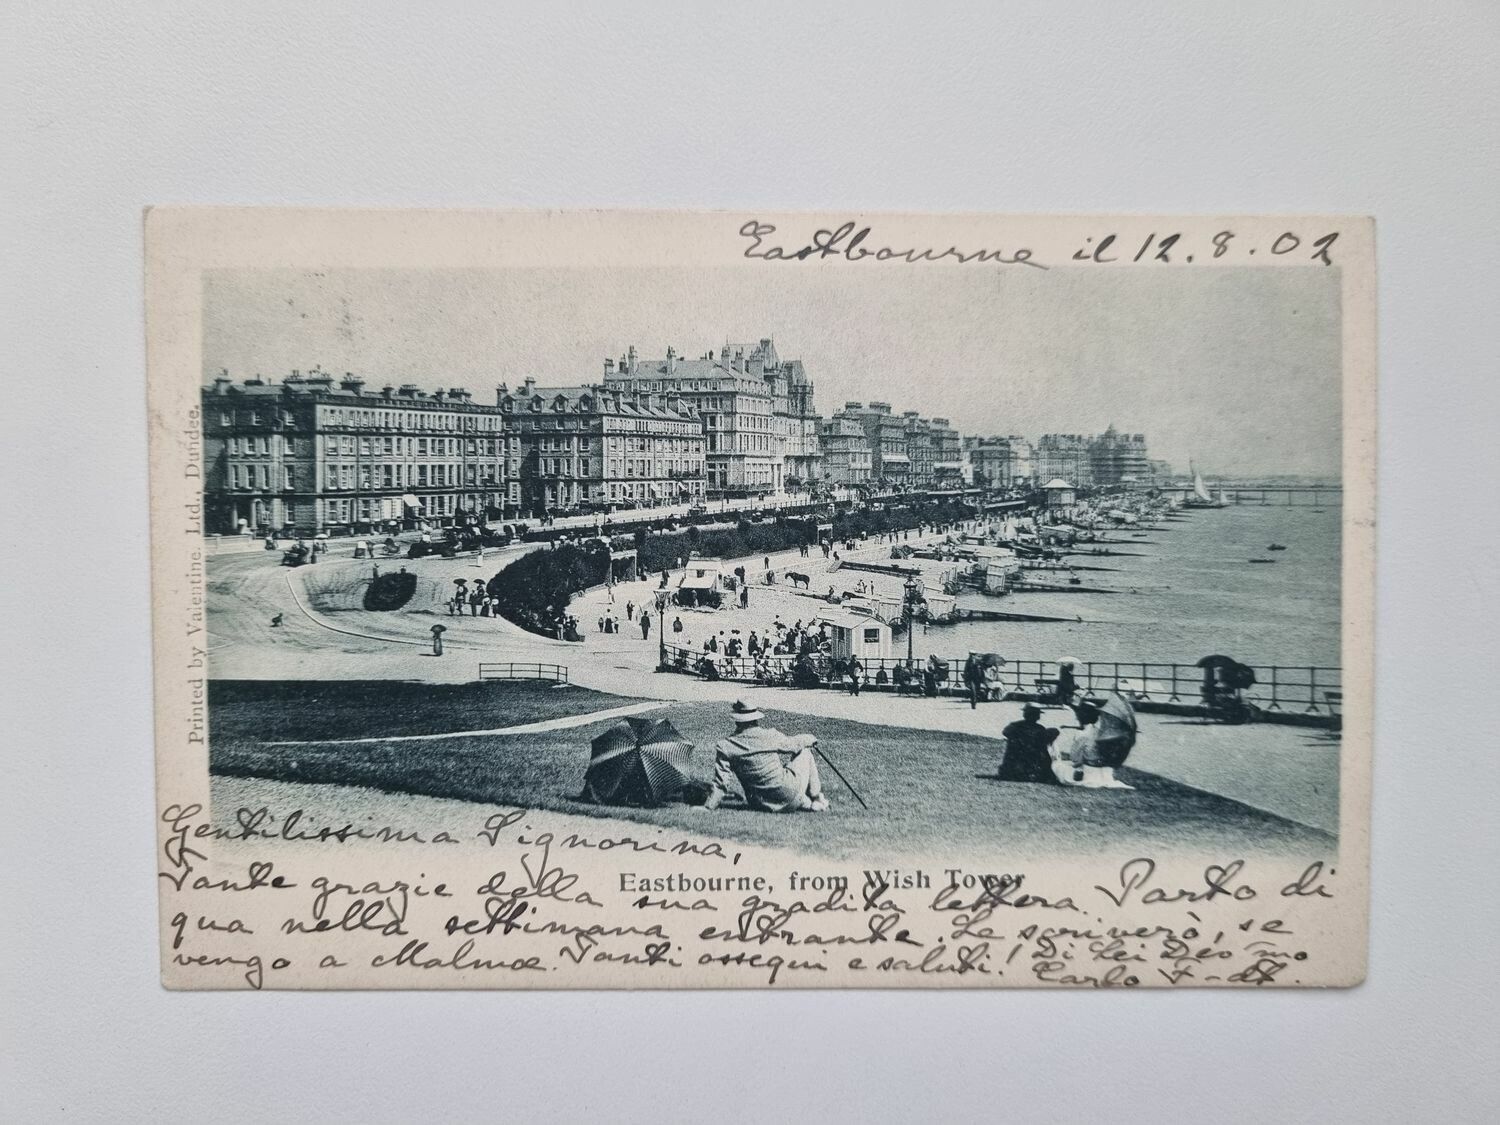 Eastbourne il 12.8.02
Printed by Valentine. Ltd., Dundee.
Gentilissima Signorina,
Eastbourne, from Wish Tower
Tante grazie della sua gradita lettera. Parto di
qua nella settimana entrante. Le scriverò, se
vengo a Malmoe. Tanti ossequi e saluti! Di Lei Dev mo
Carlo